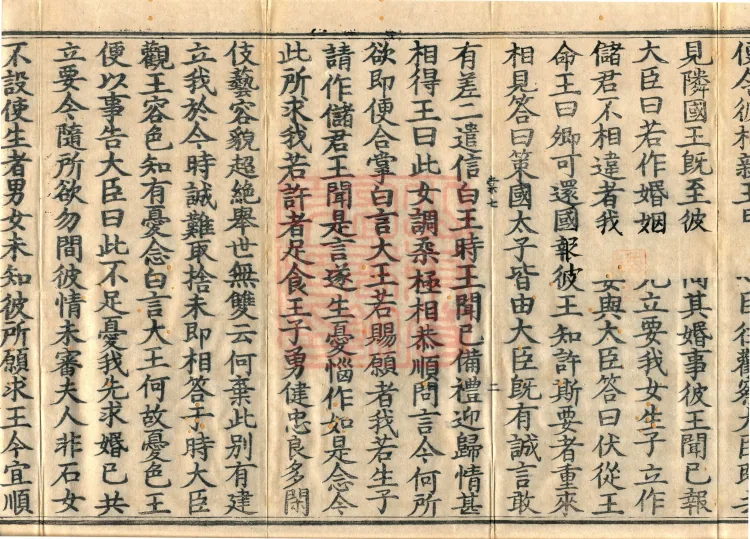 見隣國王既至彼問其婚事彼王聞已報
大臣曰若作婚姻立要我女生子立作
儲君不相違者我女與大臣答曰伏從王
命王曰卿可還國報彼王知許斯要者重來
相見答曰策國太子皆由大臣既有誠言敢
二
有差二遣信白王時王聞已備禮迎歸情甚
相得王曰此女調柔極相恭順問言今何所
欲即便合掌白言大王若賜願者我若生子
請作儲君王聞是言遂生憂惱作如是念今
此所求我若許者足食王子勇健忠良多閑
伎藝容貌超絶舉世無雙云何棄此別有建
立我於今時誠難取捨未即相答于時大臣
觀王容色知有憂念白言大王何故憂色王
便以事告大臣曰此不足憂我先求婚已共
立要今隨所欲勿間彼情未審夫人非石女
不設使生者男女未知彼所願求王今宜順